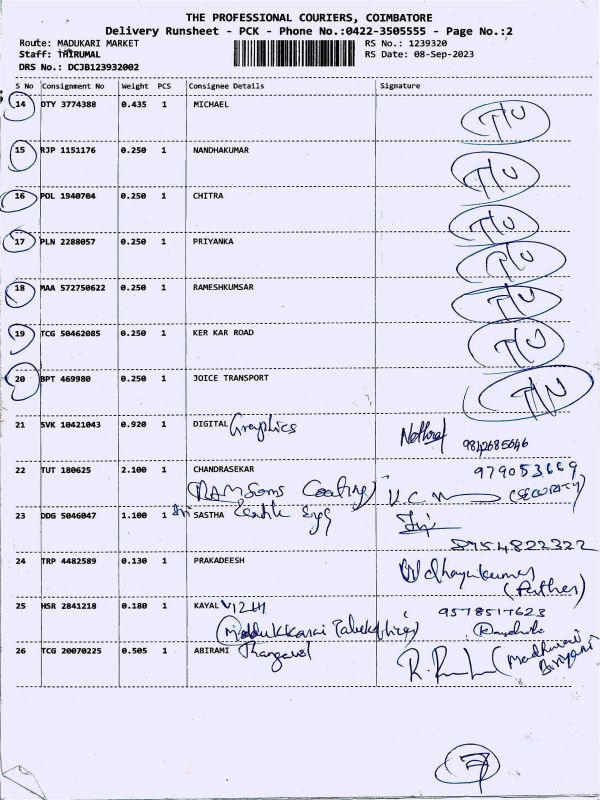 THE PROFESSIONAL COURIERS, COIMBATORE
Delivery Runsheet - PCK - Phone No.:0422-3505555 - Page No.:2
Route: MADUKARI MARKET RS No.: 1239320
Staff: THIRUMAL RS Date: 08-Sep-2023
DRS No.: DCJB123932002
S No Consignment No Weight PCS Consignee Details Signature
14 DTY 3774388 0.435 1 MICHAEL T/U
15 RJP 1151176 0.250 1 NANDHAKUMAR T/U
16 POL 1940704 0.250 1 CHITRA T/U
17 PLN 2288057 0.250 1 PRIYANKA
18 MAA 572750622 0.250 1 RAMESHKUMSAR T/U
19 TCG 50462085 0.250 1 KER KAR ROAD T/U
20 BPT 469980 0.250 1 JOICE TRANSPORT T/U
21 SVK 10421043 0.920 1 DIGITAL Graphics
9842685646
22 TUT 180625 2.100 1 CHANDRASEKAR 979053669
Coating (SECURITY)
23 DDG 5046047 1.100 1 Sri SASTHA
8954822322
24 TRP 4482589 0.130 1 PRAKADEESH
(father)
25 HSR 2841218 0.180 1 KAYAL VIZHI 9578517623
Maddukkarai
26 TCG 20070225 0.505 1 ABIRAMI
7